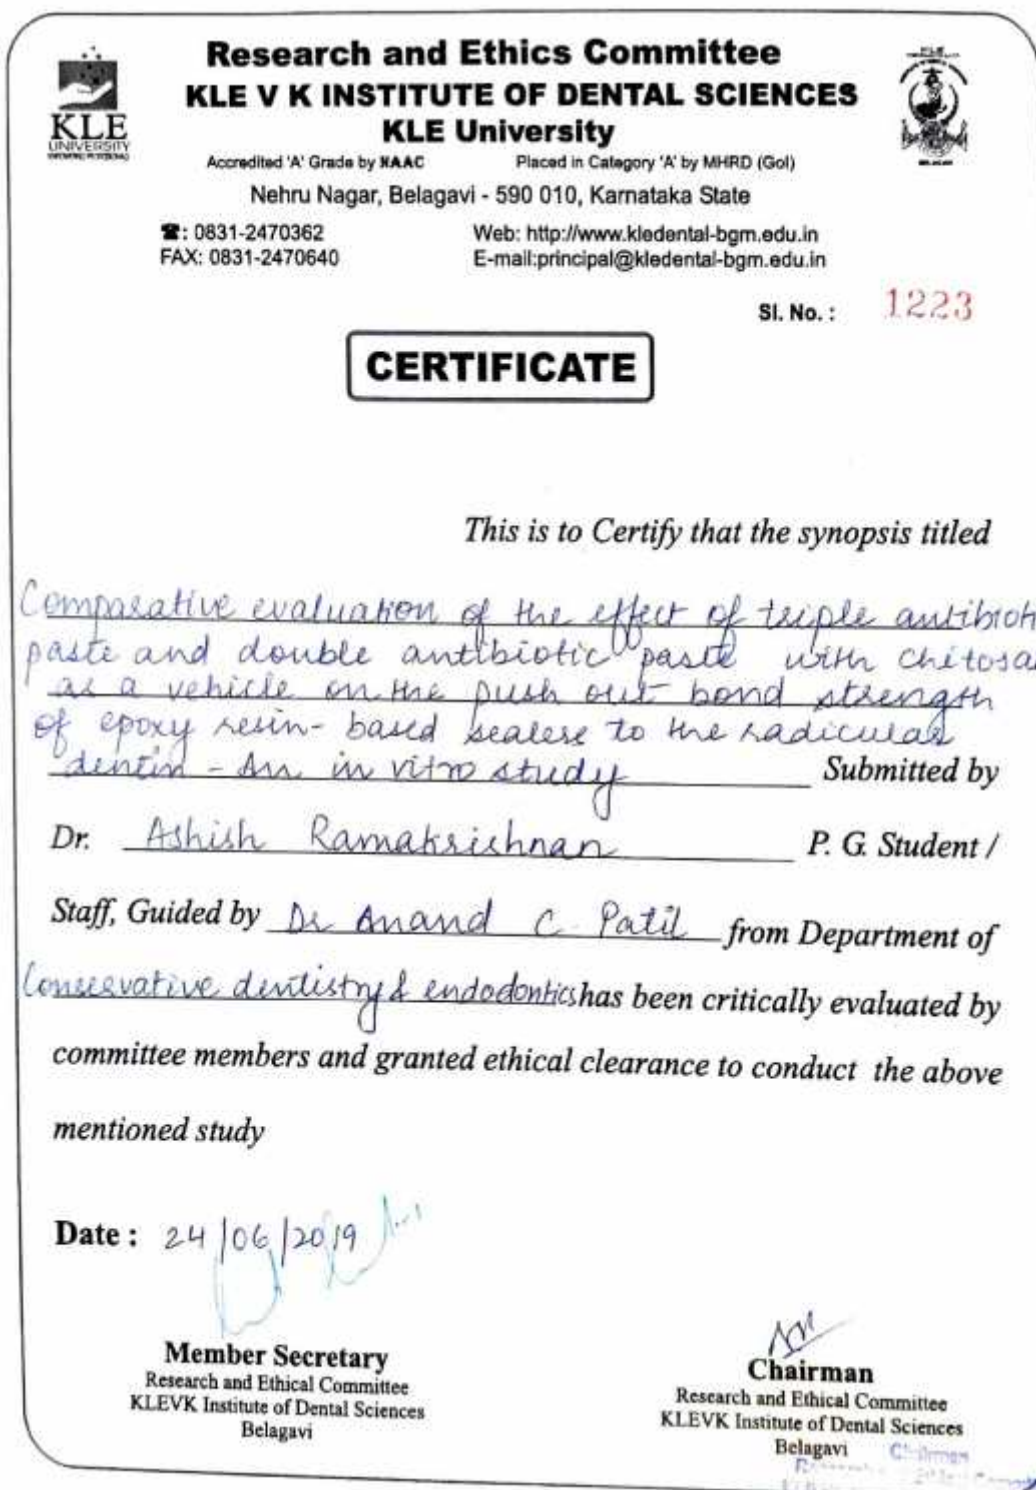 Research and Ethics Committee
KLE V K INSTITUTE OF DENTAL SCIENCES
KLE University
KLE
UNIVERSITY
Accredited 'A' Grade by NAAC Placed in Category 'A' by MHRD (GoI)
Nehru Nagar, Belagavi - 590 010, Karnataka State
☎: 0831-2470362 Web: http://www.kledental-bgm.edu.in
FAX: 0831-2470640 E-mail:principal@kledental-bgm.edu.in
Sl. No. : 1223
CERTIFICATE
This is to Certify that the synopsis titled
Comparative evaluation of the effect of triple antibioti
paste and double antibiotic paste with chitosa
as a vehicle on the push out bond strength
of epoxy resin-based sealers to the radicular
dentin - An in vitro study Submitted by
Dr. Ashish Ramakrishnan P. G. Student /
Staff, Guided by Dr Anand C. Patil from Department of
Conservative dentistry & endodontics has been critically evaluated by
committee members and granted ethical clearance to conduct the above
mentioned study
Date : 24/06/2019
Member Secretary
Research and Ethical Committee
KLEVK Institute of Dental Sciences
Belagavi
Chairman
Research and Ethical Committee
KLEVK Institute of Dental Sciences
Belagavi
Chairman